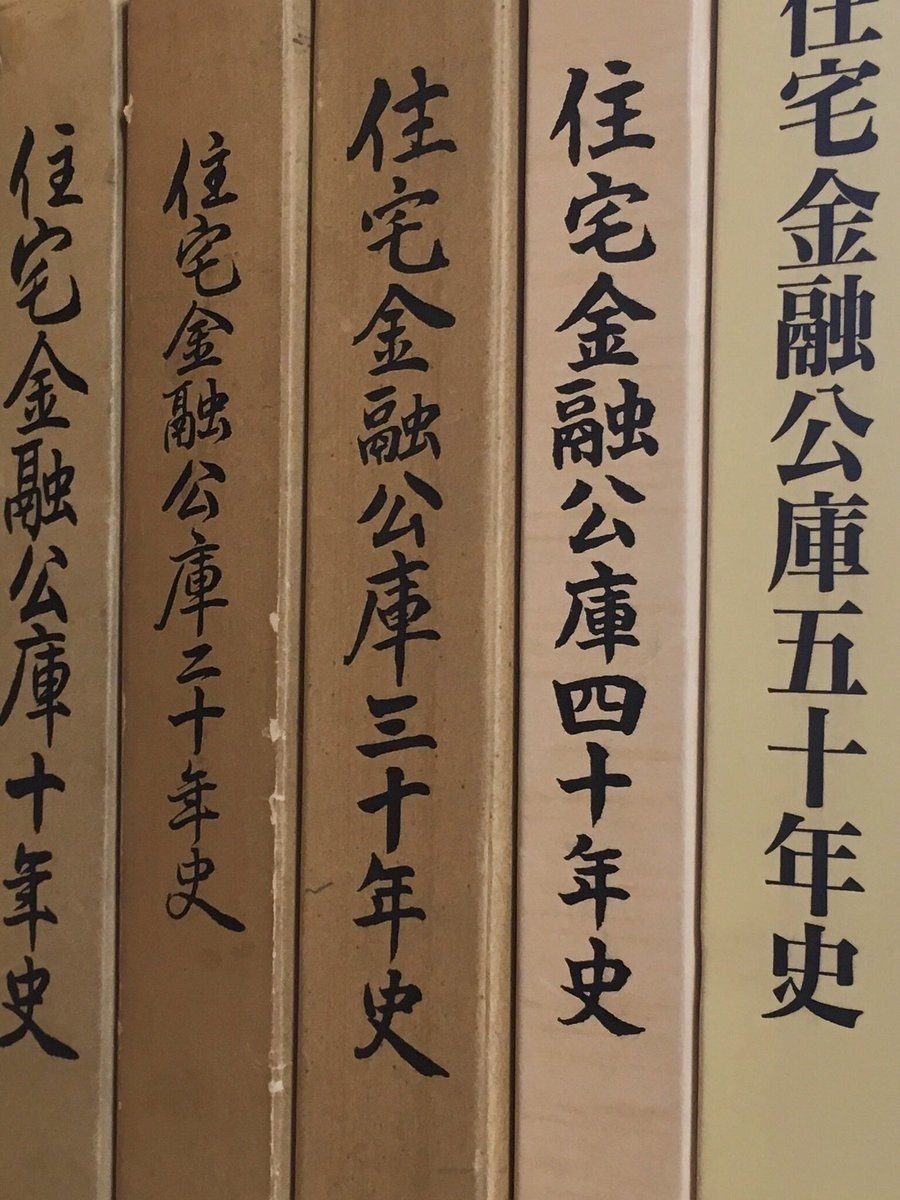 住宅金融公庫十年史
住宅金融公庫二十年史
住宅金融公庫三十年史
住宅金融公庫四十年史
住宅金融公庫五十年史